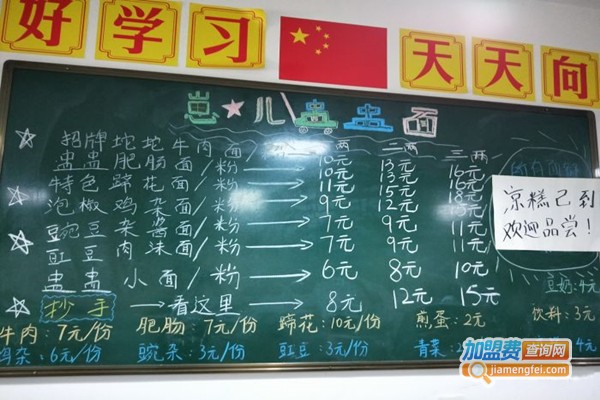 好学习 天天向
崽儿 蛊蛊面
一两 二两 三两
招牌坨坨牛肉面/粉 10元 13元 16元
蛊蛊肥肠面/粉 10元 13元 16元
特色蹄花面/粉 11元 15元 18元
泡椒鸡杂面/粉 9元 12元 15元
豌豆杂酱面/粉 7元 9元 11元
豇豆肉沫面/粉 7元 9元 11元
蛊蛊小面/粉 6元 8元 10元
抄手 看这里 8元 12元 15元
凉糕已到
欢迎品尝!
豆奶:4元
牛肉:7元/份 肥肠:7元/份 蹄花:10元/份 煎蛋:2元 饮料:3元
鸡杂:6元/份 豌杂:3元/份 豇豆:3元/份 青菜: 4元
加盟费查询网
jiamengfei.com